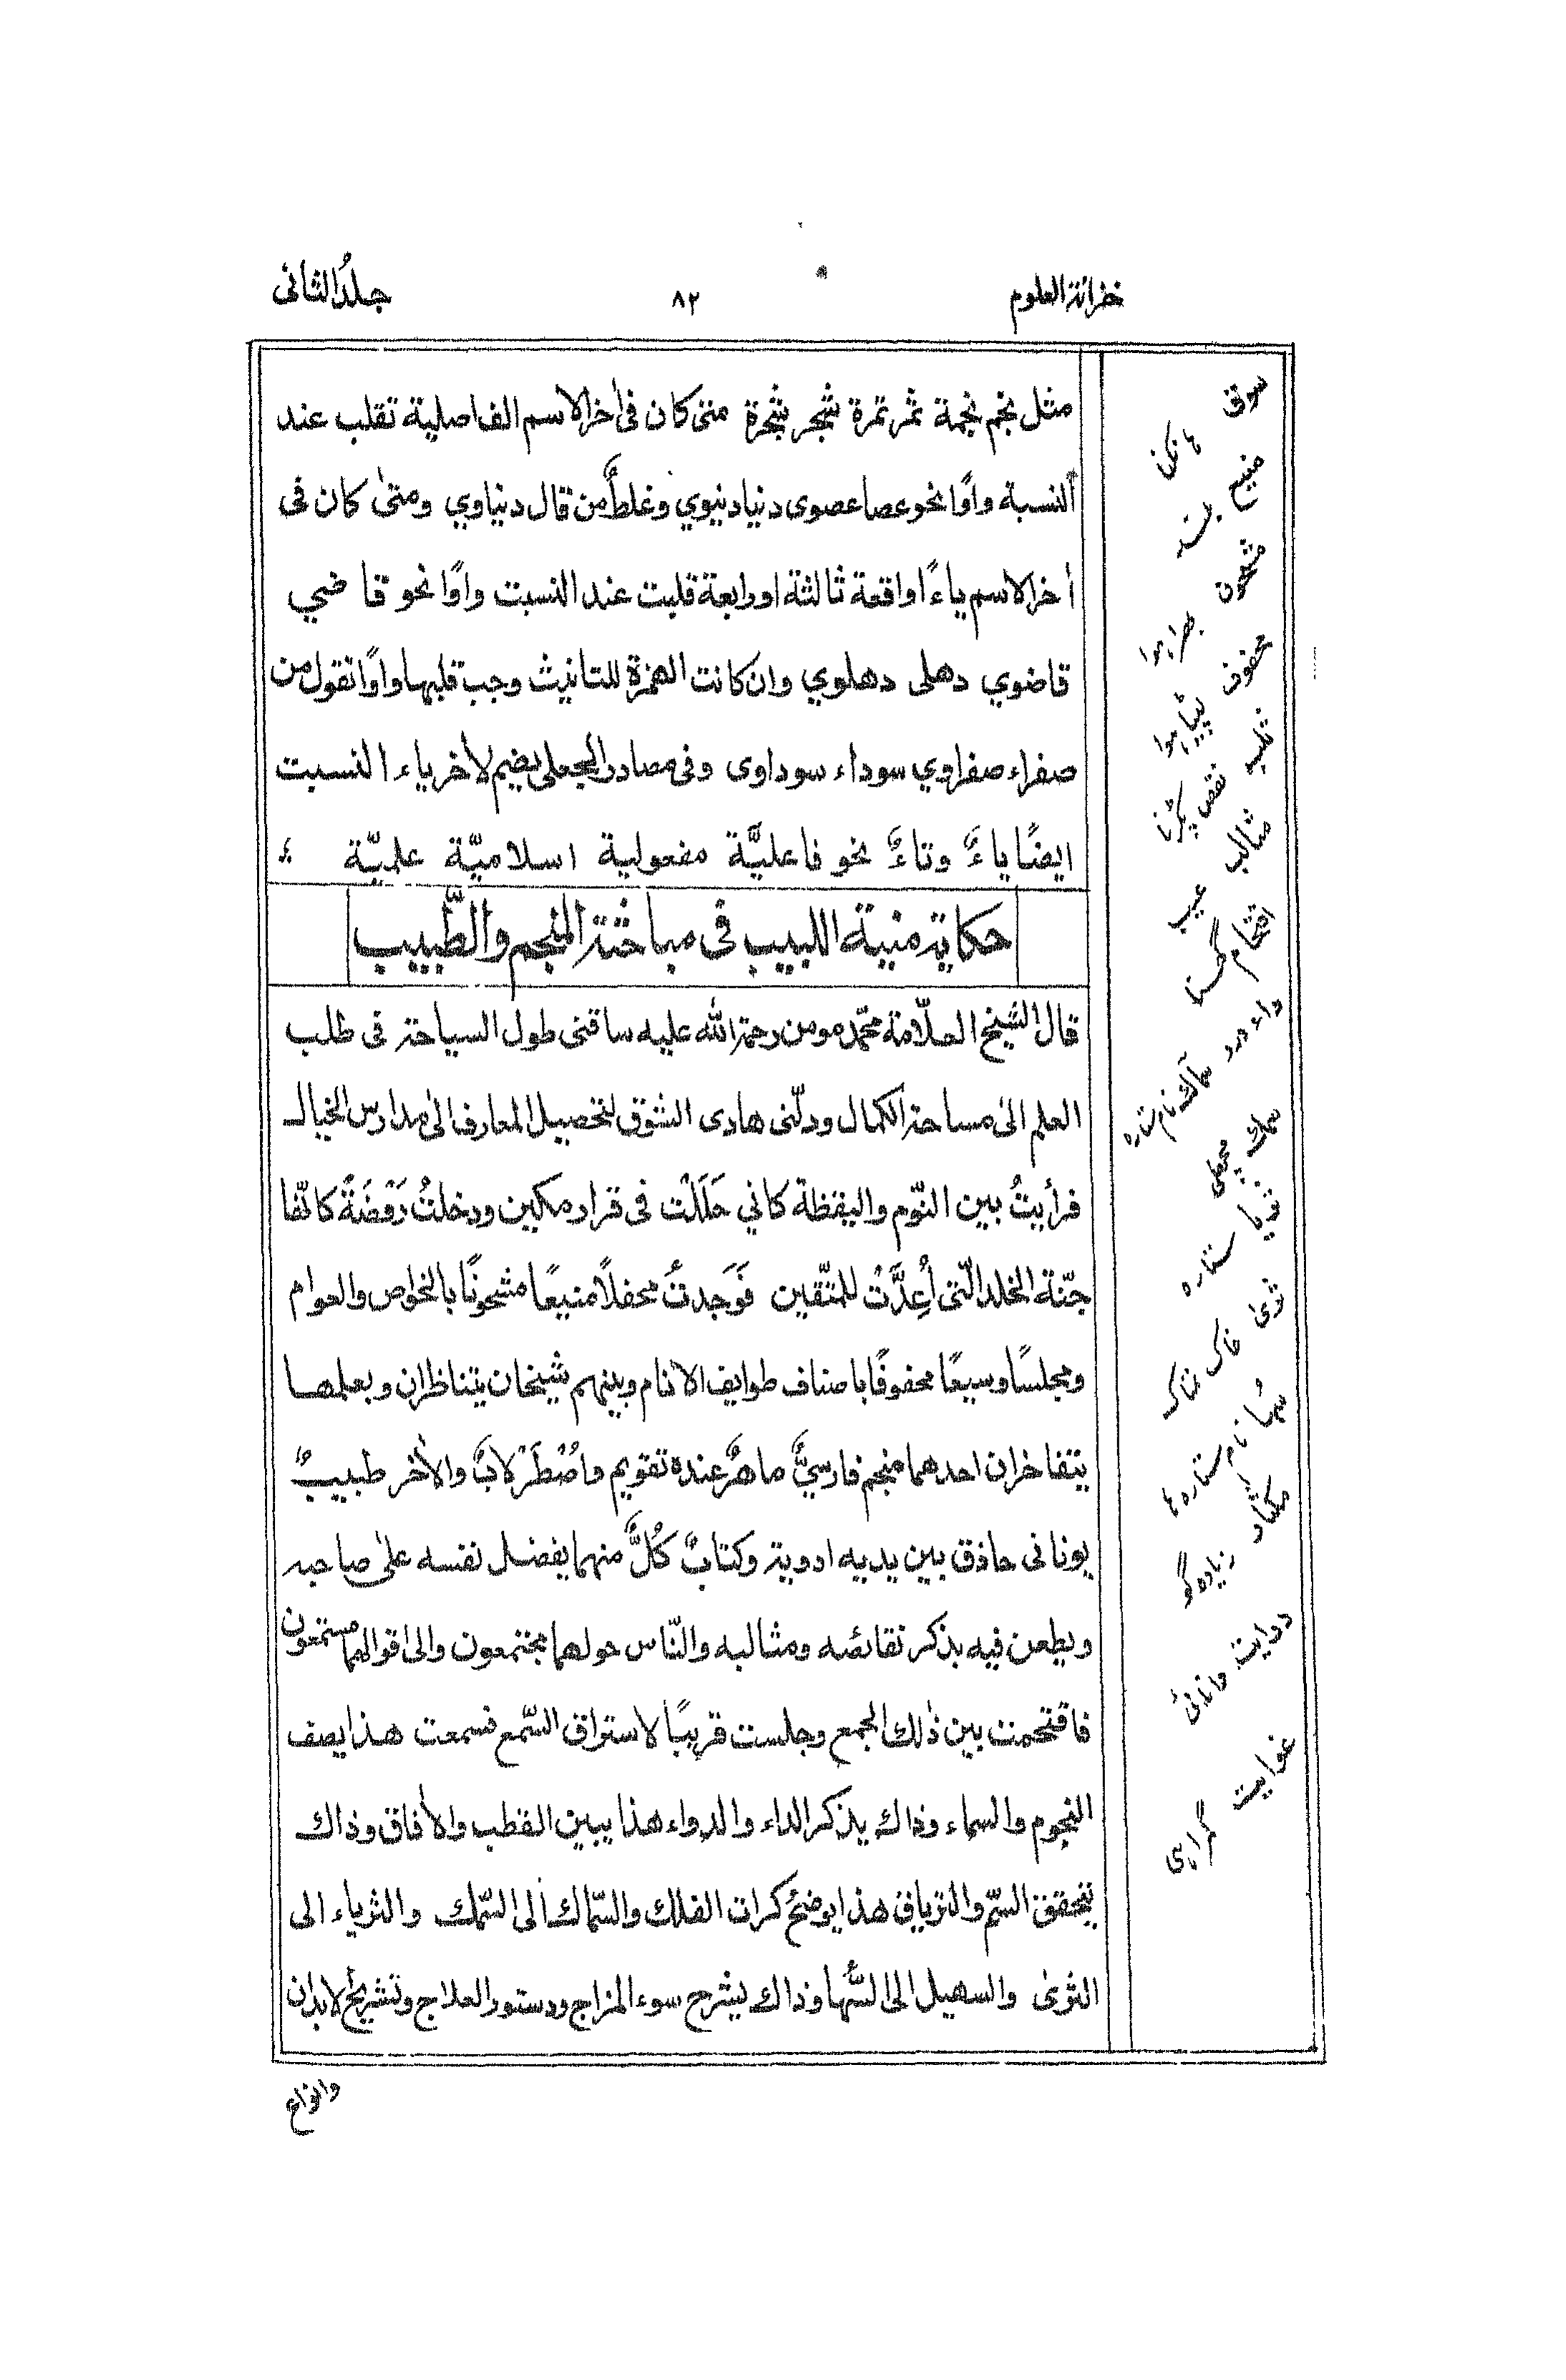 خزانة العلوم
۸۲
جلدُ الثانى
مثل نجم نجمة ثمر ثمرة شجر شجرة متى كان فى اٰخر الاسم الف اصلية تقلب عند
النسبة واوًا نحو عصا عصوى دنيا دنيوي وغلطٌ من قال دنياوي ومتىٰ كان فى
أخر الاسم ياءً اواقعة ثالثة او رابعة قلبت عند النسبت واوًا نحو قا ضي
قاضوي دهلى دهلوي وان كانت الهمزة للتانيث وجب قلبها واوًا تقول من
صفراء صفراوي سوداء سوداوى وفى مصادر الجعلى يضم لأخر ياء النسبت
ايضًا ياءً وتاءً نحو فاعليَّة مفعولية اسلاميّة علميّة
حكاية منية اللبيب فى مباحثة المنجم والطّبيب
قال الشيخ العلّامة محمّد مومن رحمة الله عليه ساقنى طول السياحة فى طلب
العلم الىٰ مساحة الكمال ودلّنى هادى الشوق لتحصيل المعارف الىٰ مدارس الخيال
فرأيتُ بين النّوم واليقظة كاني حَلَلْت فى قرار مكين ودخلتُ رَوْضَةً كانّها
جنّة الخلد الّتى أُعِدَّتْ للمتّقين فَوَجدتُ محفلاً منيعًا مشحونًا بالخواص والعوام
ومجلسًا وسيعًا محفوفًا باصناف طوايف الانام وبينهم شيخان يتناظران وبعلمهما
يتفاخران احدهما منجم فارسيٌّ ماهرٌ عنده تقويم واُصْطَرْلابٌ والاٰخر طبيبٌ
يونانى حاذق بين يديه ادوية وكتابٌ كُلٌّ منهما يفضل نفسه علىٰ صاحبه
ويطعن فيه بذكر نقائصه ومثالبه والنّاس حولهما مجتمعون والى اقوالهما مستمعون
فاقتحمت بين ذٰلك الجمع وجلست قريبًا لاستراق السّمع فسمعت هذا يصف
النجوم والسماء وذاك يذكر الداء والدواء هذا يبين القطب والاٰفاق وذاك
يتحقق السّم والترياق هذا يوضح كرات الفلك والسّماك الى السّمك والثرياء الى
الثرىٰ والسهيل الى السُّها وذاك يشرح سوء المزاج ودستور العلاج وتشريح لابدان
سوق
ہانکنا
منيع
مشحون
بھرا ہوا
محفوف
ثلب
نقص پکڑنا
مثالب
عیب
اقتحام
گھسنا
داء درد
سماك نام ستارہ
سمك
مچھلی
ثریا
ستارہ
ثرىٰ
خاک نمناک
سُہا
نام ستارہ
مكثار
زیادہ گو
درایت
دانائی
غوايت
گمراہی
وانواع